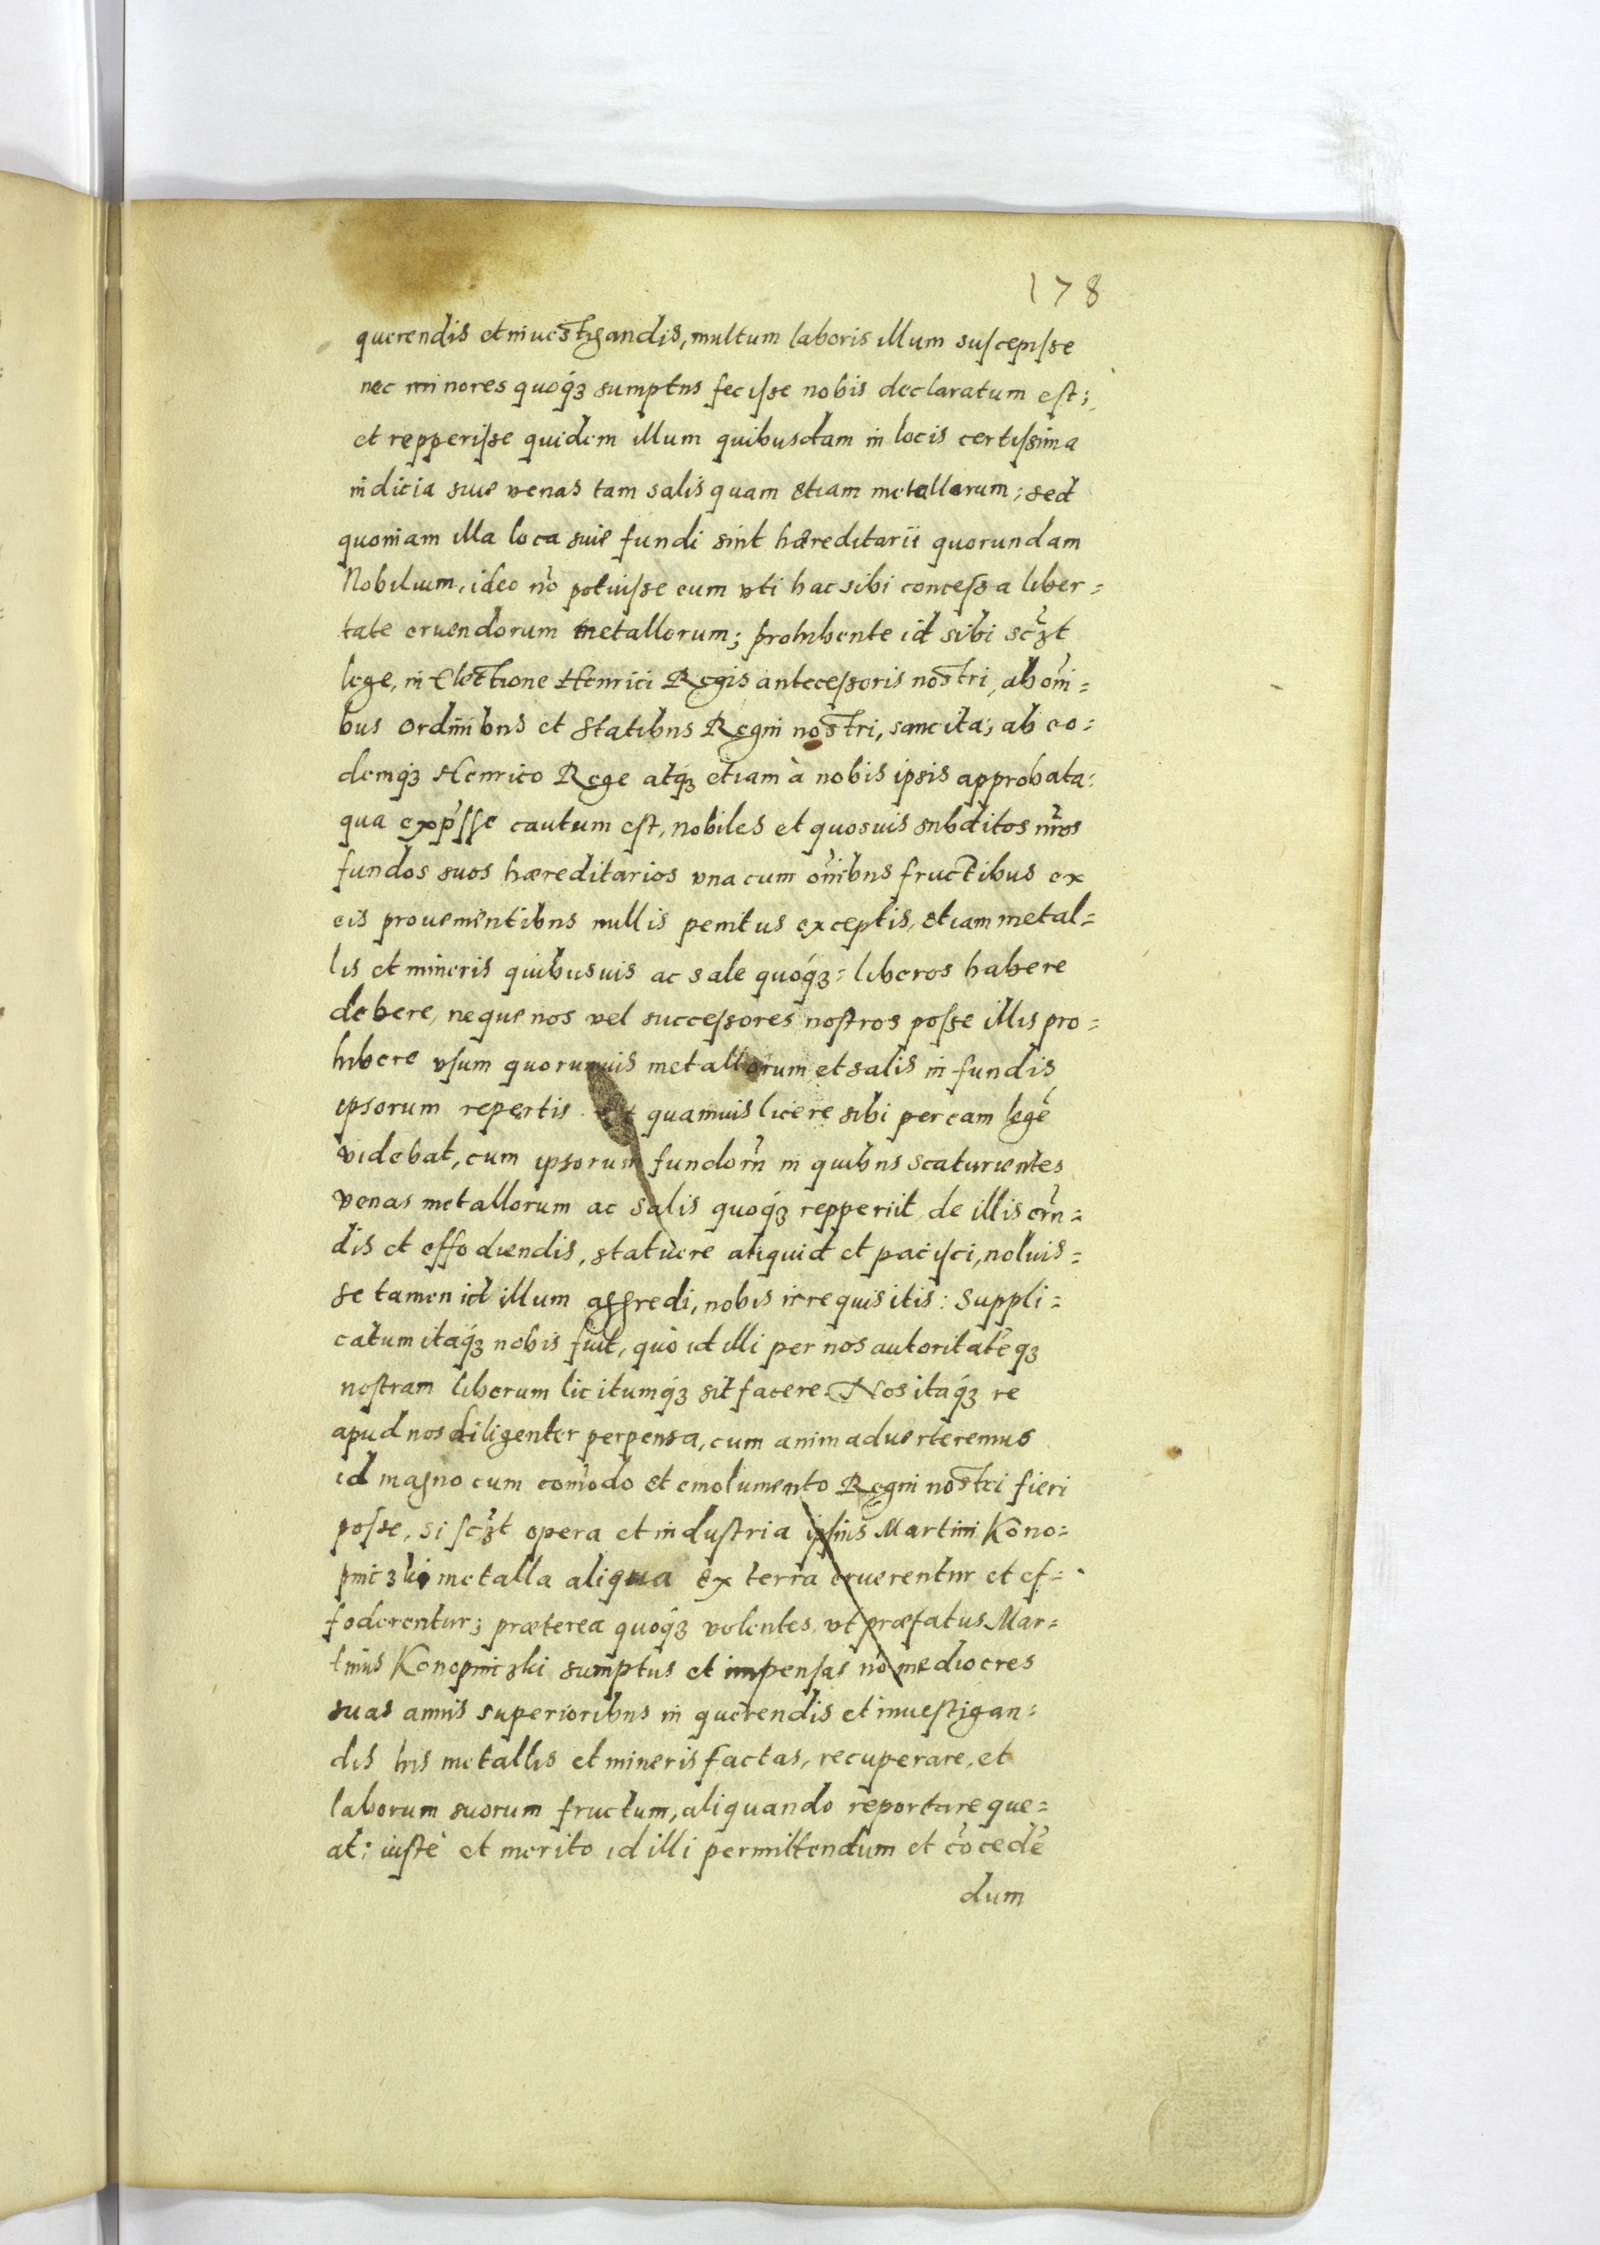 178
querendis et inuestigandis, multum laboris illum suscepisse
nec minores quoqꝫ sumptus fecisse nobis declaratum est;
et repperisse quidem illum quibusdam in locis certissima
indicia siue venas tam salis quam etiam metallorum; sed
quoniam illa loca siue fundi sint hæreditarii quorundam
Nobilium, ideo nō potuisse eum vti hac sibi concessa liber=
tate eruendorum metallorum; prohibente id sibi scꝫt
lege, in Electione Henrici Regis antecessoris nostri, ab om̄i=
bus Ordinibus et Statibus Regni nostri, sancita; ab eo=
demqꝫ Henrico Rege atqꝫ etiam à nobis ipsis approbata:
qua exp̄sse cautum est, nobiles et quosuis subditos nr̄os
fundos suos hæreditarios vna cum om̄ibus fructibus ex
eis prouenientibus nullis penitus exceptis, etiam metal=
lis et mineris quibusuis ac sale quoqꝫ= liberos habere
debere, neque nos vel successores nostros posse illis pro=
hibere vsum quorumuis metallorum et salis in fundis
ipsorum repertis. Et quamuis licere sibi per eam legē
videbat, cum ipsorum fundorū in quibus scaturientes
venas metallorum ac salis quoqꝫ repperiit, de illis erū=
dis et effodiendis, statuere aliquid et pacisci, noluis=
se tamen id illum aggredi, nobis irrequisitis: Suppli=
catum itaqꝫ nobis fuit, quò id illi per nos autoritatēqꝫ
nostram liberum licitumqꝫ sit facere. Nos itaqꝫ re
apud nos diligenter perpensa, cum animaduerteremus
id magno cum com̄odo et emolumento Regni nostri fieri
posse, si scꝫt opera et industria ipsius Martini Kono=
pniczki metalla aliqua ex terra eruerentur et ef=
foderentur; præterea quoqꝫ volentes, vt præfatus Mar=
tinus Konopniczki sumptus et impensas nō mediocres
suas annis superioribus in querendis et inuestigan=
dis his metallis et mineris factas, recuperare, et
laborum suorum fructum, aliquando reportare que=
at: iustè et merito id illi permittendum et cōcedē
dum